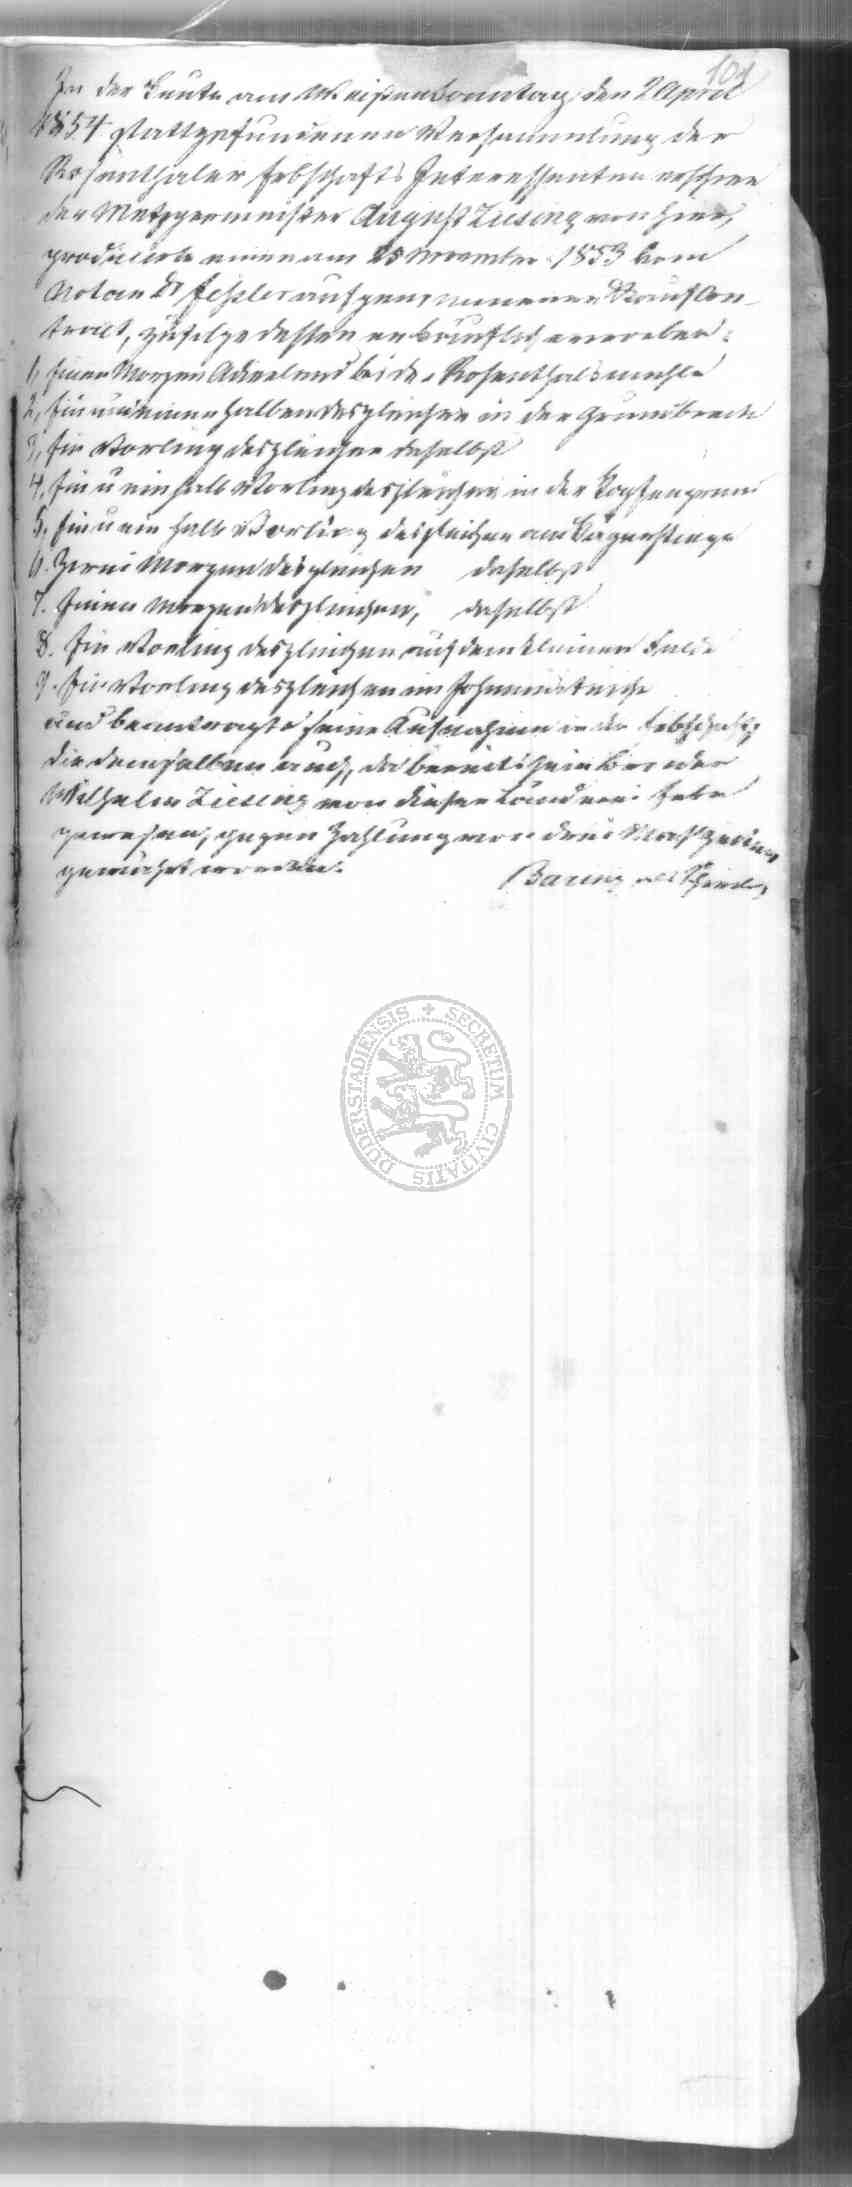 101
In der heute am Weißensonntag, den 2 April
1854 stattgefundenen Versammlung der
Rosenthaler Erbschafts Interessenten erschien
der Metzgermeister August Ziesing von hier,
producirte einen am 25 November 1853 vom
Notar Dr aufgenommenen Kauf Con-
tract, zufolge dessen er käuflich erworben:
1, Einen Morgen Ackerland bei der Rosenthalsmühle
2, Ein und einen halben desgleichen in der
3, Ein Vorling desgleichen daselbst
4, Ein u ein halb Vorling desgleichen in der
5. Ein u ein halb Vorling desgleichen am
6. Zwei Morgen desgleichen daselbst
7. Einen Morgen desgleichen, daselbst
8. Ein Vorling desgleichen auf dem kleinen Felde
9. Ein Vorling desgleichen im
und beantragte seine Aufnahme in die Erbschaft,
die demselben auch, da bereits sein Bruder
Wilhelm Ziesing von dieser Länderei Erbe
gewesen, gegen Zahlung von drei
gewährt worden.
Baring als
DUDERSTADIENSIS + SECRETUM CIVITATIS